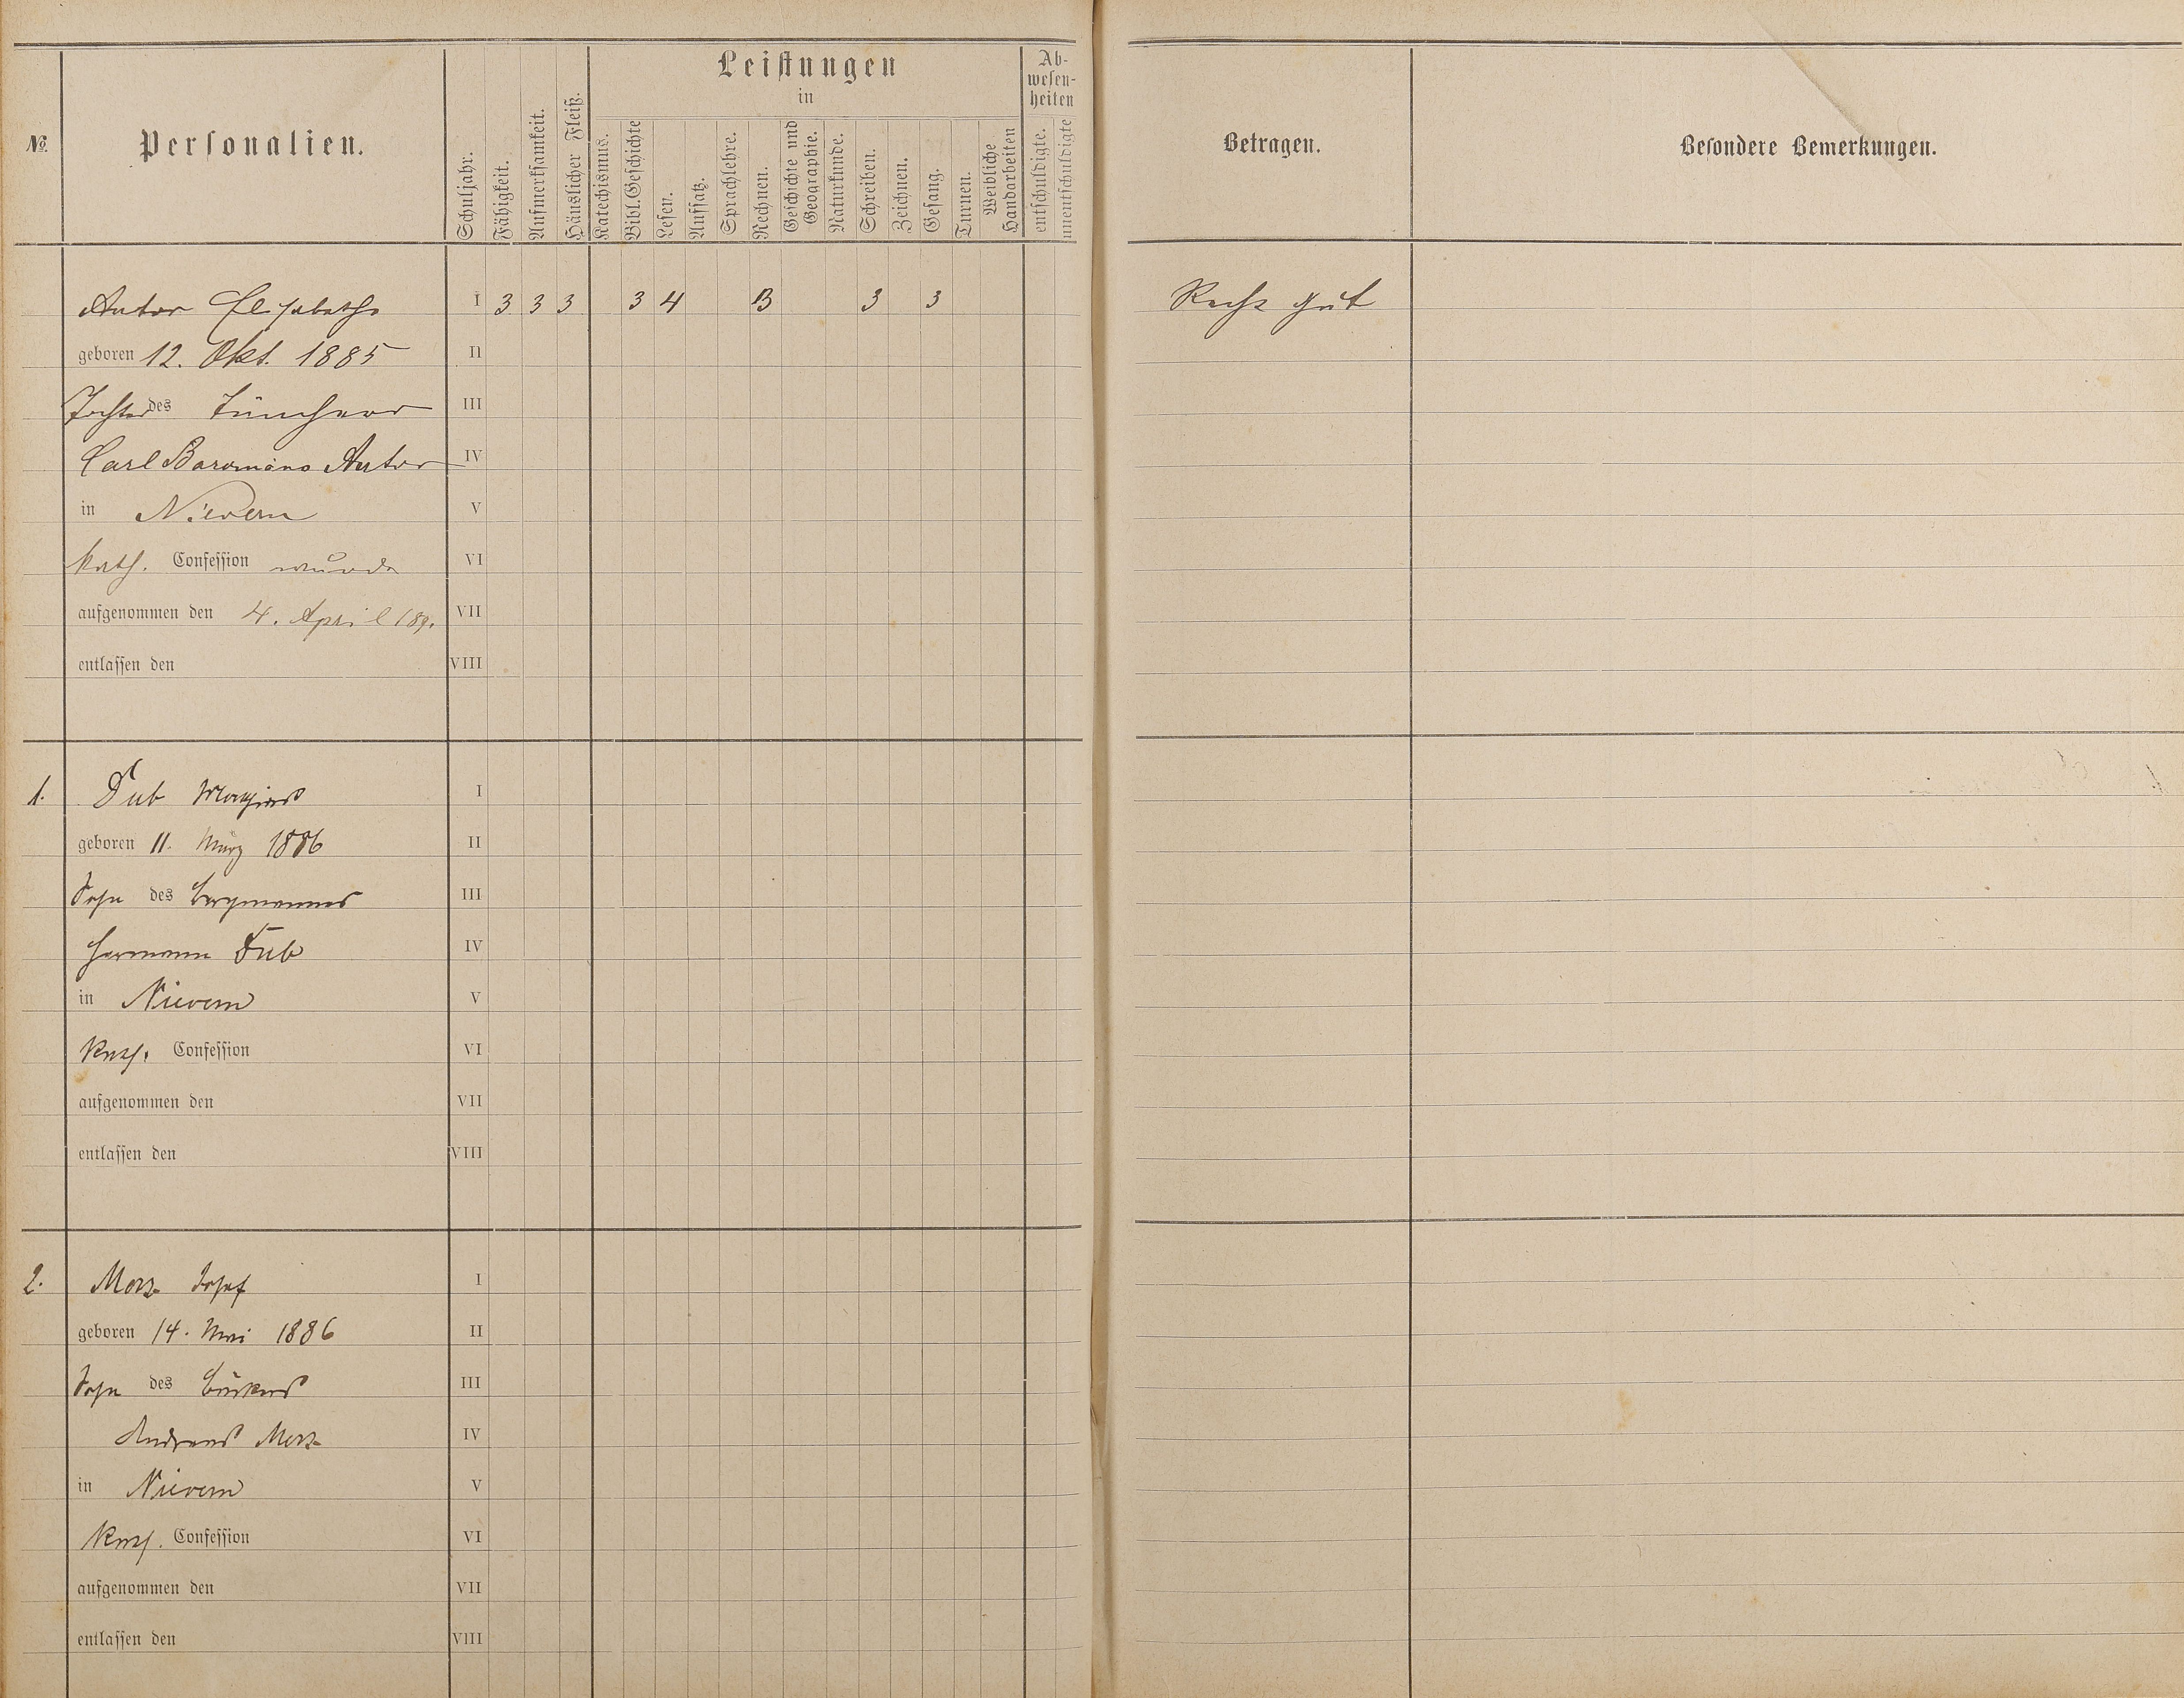 №.
Personalien.
Schuljahr.
Fähigkeit.
Aufmerksamkeit.
Häuslicher Fleiß.
Leistungen
in
Katechismus.
Bibl. Geschichte
Lesen.
Aufsatz.
Sprachlehre.
Rechnen.
Geschichte und
Geographie.
Naturkunde.
Schreiben.
Zeichnen.
Gesang.
Turnen.
Weibliche
Handarbeiten
Ab-
wesen-
heiten
entschuldigte.
unentschuldigte
Betragen.
Besondere Bemerkungen.
Elisabetha I 3 3 3 3 4 3 3 Recht gut
geboren 12. Okt. 1885 II
Tochter des Tünchers III
Carl IV
in Nievern V
kath. Confession wurde VI
aufgenommen den 4. April 189. VII
entlassen den VIII
1. I
geboren 11. März 1886 II
Sohn des Bergmannes III
Hermann IV
in Nievern V
Kath. Confession VI
aufgenommen den VII
entlassen den VIII
2. Josef I
geboren 14. Mai 1886 II
Sohn des III
Andreas IV
in Nievern V
Kath. Confession VI
aufgenommen den VII
entlassen den VIII